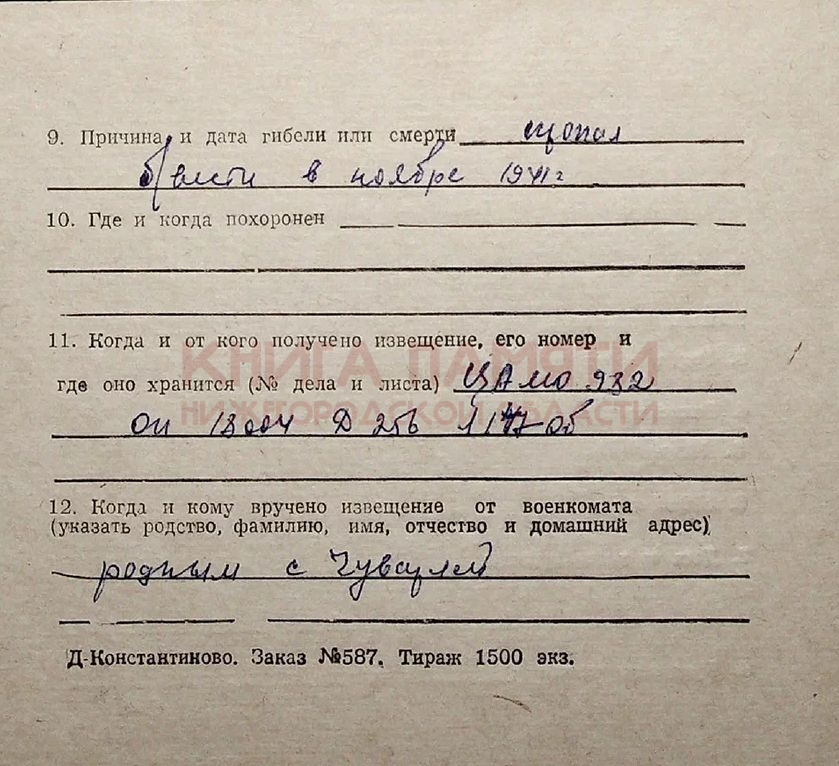 9. Причина и дата гибели или смерти пропал
б/вести в ноябре 1941 г
10. Где и когда похоронен
11. Когда и от кого получено извещение, его номер и
где оно хранится (№ дела и листа) ЦАМО 932
КНИГА ПАМЯТИ
НИЖЕГОРОДСКОЙ ОБЛАСТИ
оп 18004 Д 256
12. Когда и кому вручено извещение от военкомата
(указать родство, фамилию, имя, отчество и домашний адрес)
родным с
Д-Константиново. Заказ №587. Тираж 1500 экз.